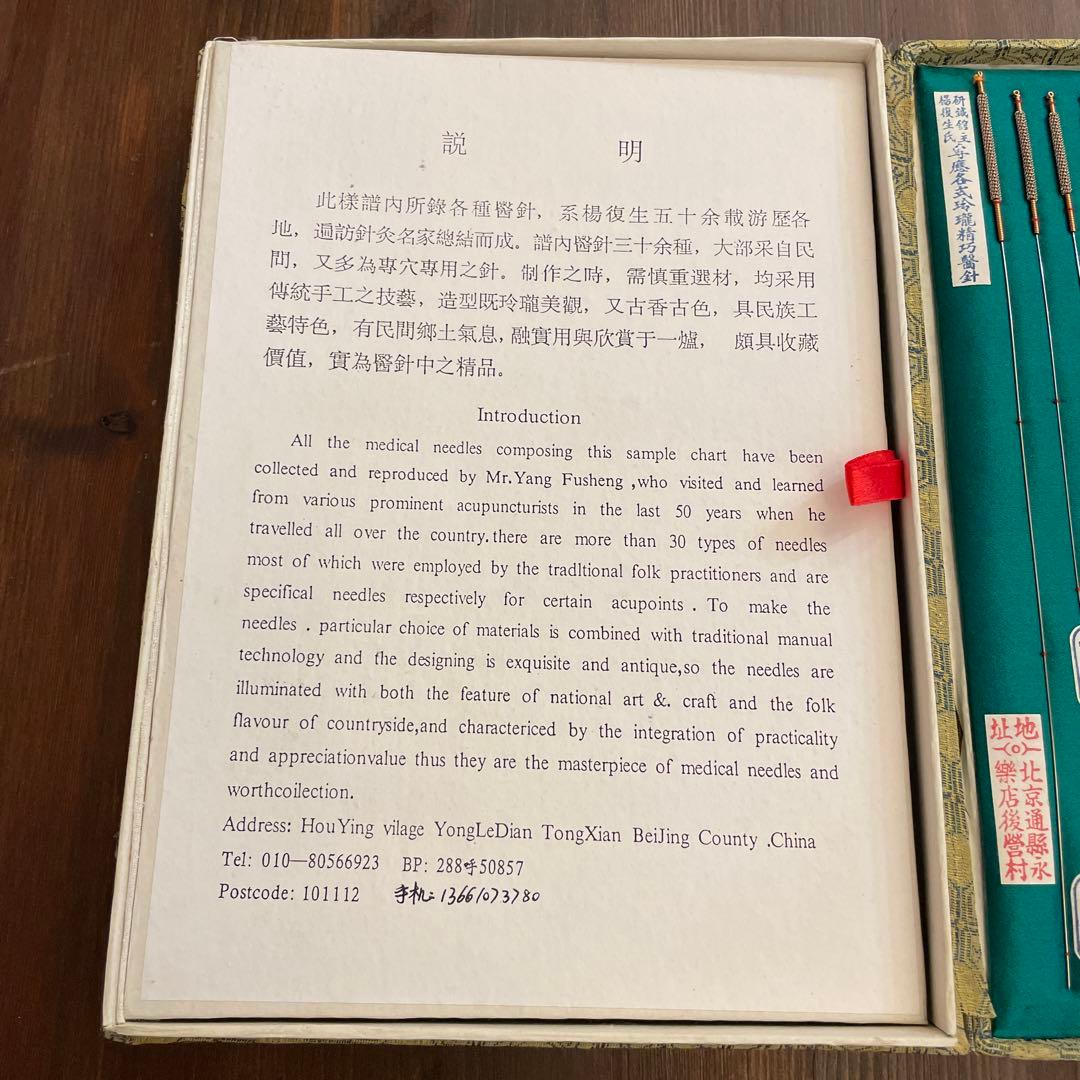 説 明
此樣譜內所錄各種醫針，系楊復生五十余載游歷各
地，遍訪針灸名家總結而成。譜內醫針三十余種，大部采自民
間，又多為專穴專用之針。制作之時，需慎重選材，均采用
傳統手工之技藝，造型既玲瓏美觀，又古香古色，具民族工
藝特色，有民間鄉土氣息，融實用與欣賞于一爐，頗具收藏
價值，實為醫針中之精品。
Introduction
All the medical needles composing this sample chart have been
collected and reproduced by Mr.Yang Fusheng ,who visited and learned
from various prominent acupuncturists in the last 50 years when he
travelled all over the country.there are more than 30 types of needles
most of which were employed by the tradltional folk practitioners and are
specifical needles respectively for certain acupoints . To make the
needles . particular choice of materials is combined with traditional manual
technology and fhe designing is exquisite and antique,so the needles are
illuminated with both the feature of national art &. craft and the folk
flavour of countryside,and charactericed by the integration of practicality
and appreciationvalue thus they are the masterpiece of medical needles and
worthcoilection.
Address: HouYing vilage YongLeDian TongXian BeiJing County .China
Tel: 010—80566923 BP: 288呼50857
Postcode: 101112 手机: 13661073780
研鍼館主
楊復生氏
專應各式玲瓏精巧醫針
地址
北京通縣永
樂店後營村